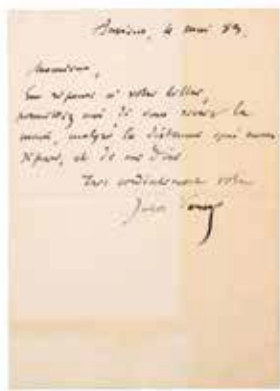 Amiens, 4 mai 89,
Monsieur,
En réponse à votre billet,
permettez moi de vous serrer la
main, malgré la distance qui nous
sépare, et de me dire
Très cordialement votre
Jules Verne